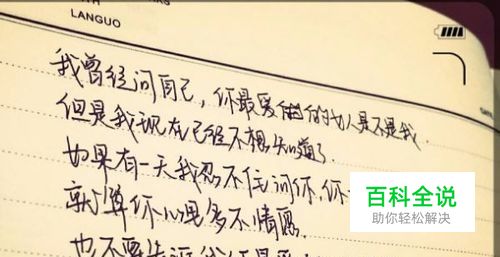 LANGUO
我曾经问自己，你最爱的女人是不是我.
但是我现在已经不想知道了
如果有一天我忍不住问你，你
就算你心里多不情愿.
也不要告诉我你最爱
百科全说
助你轻松解决